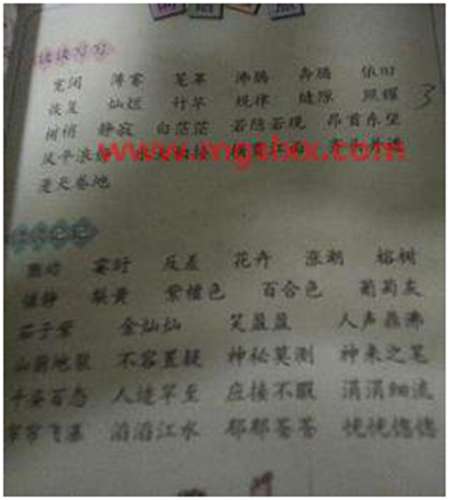 读读写写
宽阔 薄雾 笼罩 沸腾 奔腾 依旧
恢复 灿烂 规律 缝隙 照耀 3
静寂 白茫茫 若隐若现 昂首东望
风平浪静
www.mgslxx.com
漫天卷地
反差 花卉 涨潮 榕树
紫檀色 百合色 葡萄灰
茄子紫 金灿灿 笑盈盈 人声鼎沸
山崩地裂 不容置疑 神秘莫测 神来之笔
千姿百态 人迹罕至 应接不暇 涓涓细流
滔滔江水 郁郁苍苍 恍恍惚惚